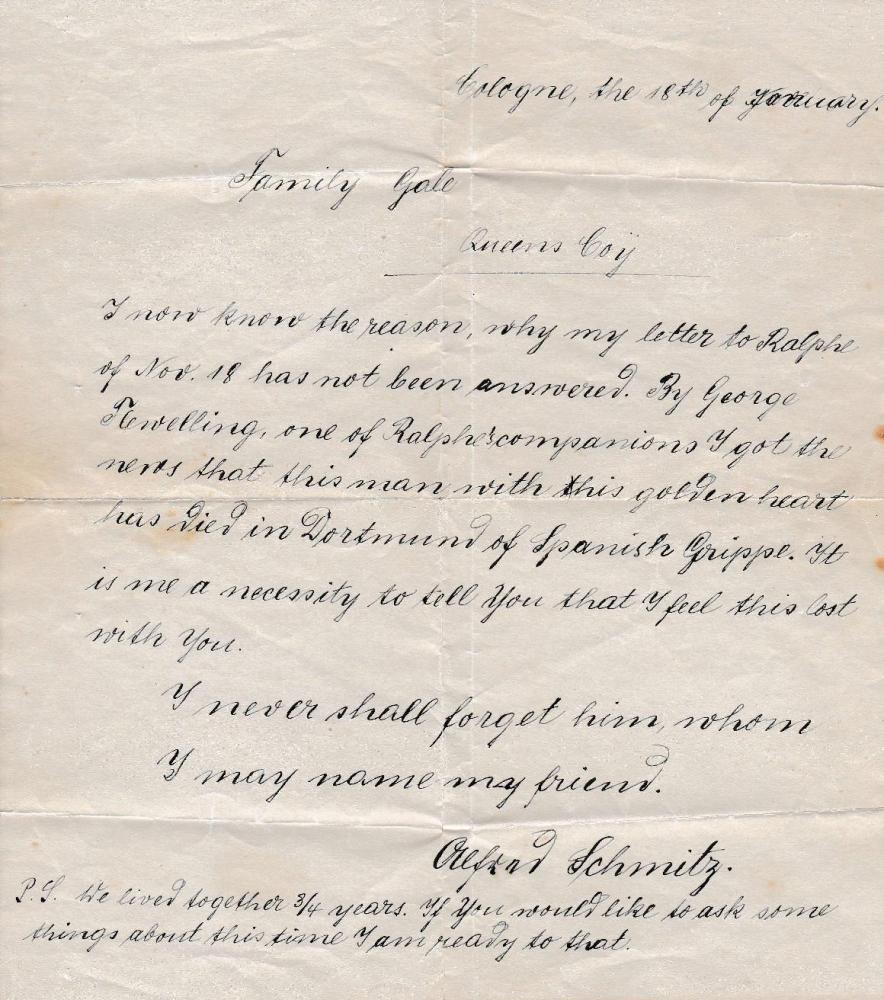 Cologne, the 18th of January.
Family Gale
Queens Coÿ
I now know the reason, why my letter to Ralphe
of Nov. 18 has not been answered. By George
Flewelling, one of Ralphe's companions I got the
news that this man with this golden heart
has died in Dortmund of Spanish Grippe. It
is me a necessity to tell You that I feel this lost
with You.
I never shall forget him, whom
I may name my friend.
Alfred Schmitz.
P.S. We lived together 3/4 years. If You would like to ask some
things about this time I am ready to that.